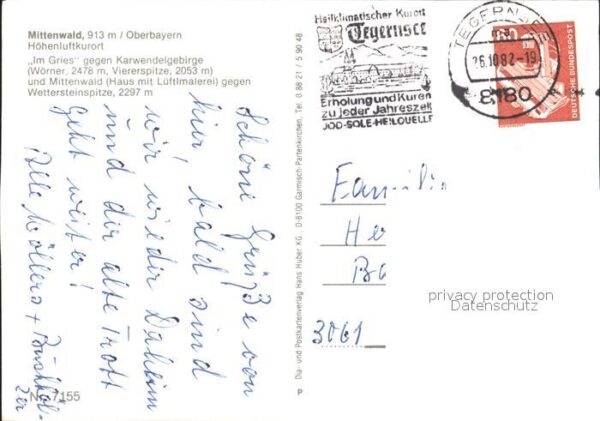 Mittenwald, 913 m / Oberbayern
Höhenluftkurort
„Im Gries" gegen Karwendelgebirge
(Wörner, 2478 m, Viererspitze, 2053 m)
und Mittenwald (Haus mit Lüftlmalerei) gegen
Wettersteinspitze, 2297 m
Schöne Grüße von
hier, bald sind
wir wieder Daheim
und der alte Trott
geht weiter!
Alle Möllers +
Nr. 7155
Dia- und Postkartenverlag Hans Huber KG. D-8100 Garmisch-Partenkirchen, Tel. 0 88 21 / 5 90 48
Heilklimatischer Kurort
Tegernsee
Erholung und Kuren
zu jeder Jahreszeit
JOD-SOLE-HEILQUELLE
TEGERNSEE
26.10.82-19
8180
DEUTSCHE BUNDESPOST
Famili
He
Ba
3061
privacy protection
Datenschutz